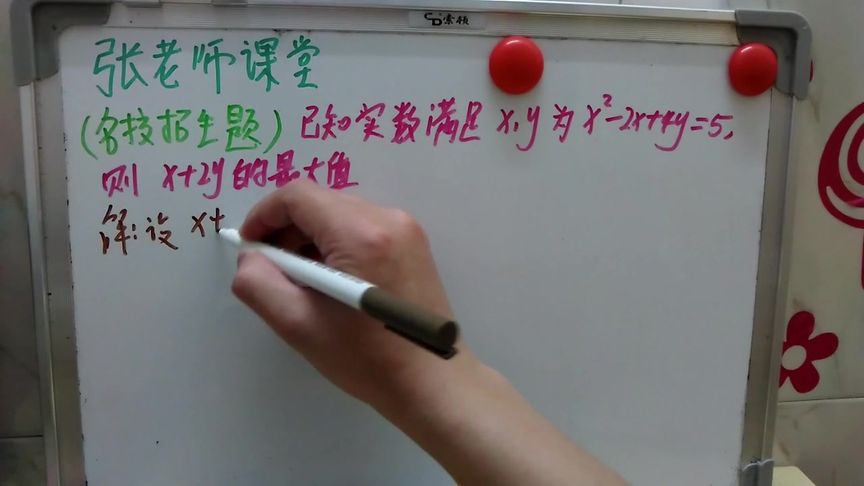 索顿
张老师课堂
(名校招生题) 已知实数满足 x,y 为 x²-2x+4y=5,
则 x+2y 的最大值
解: 设 x+